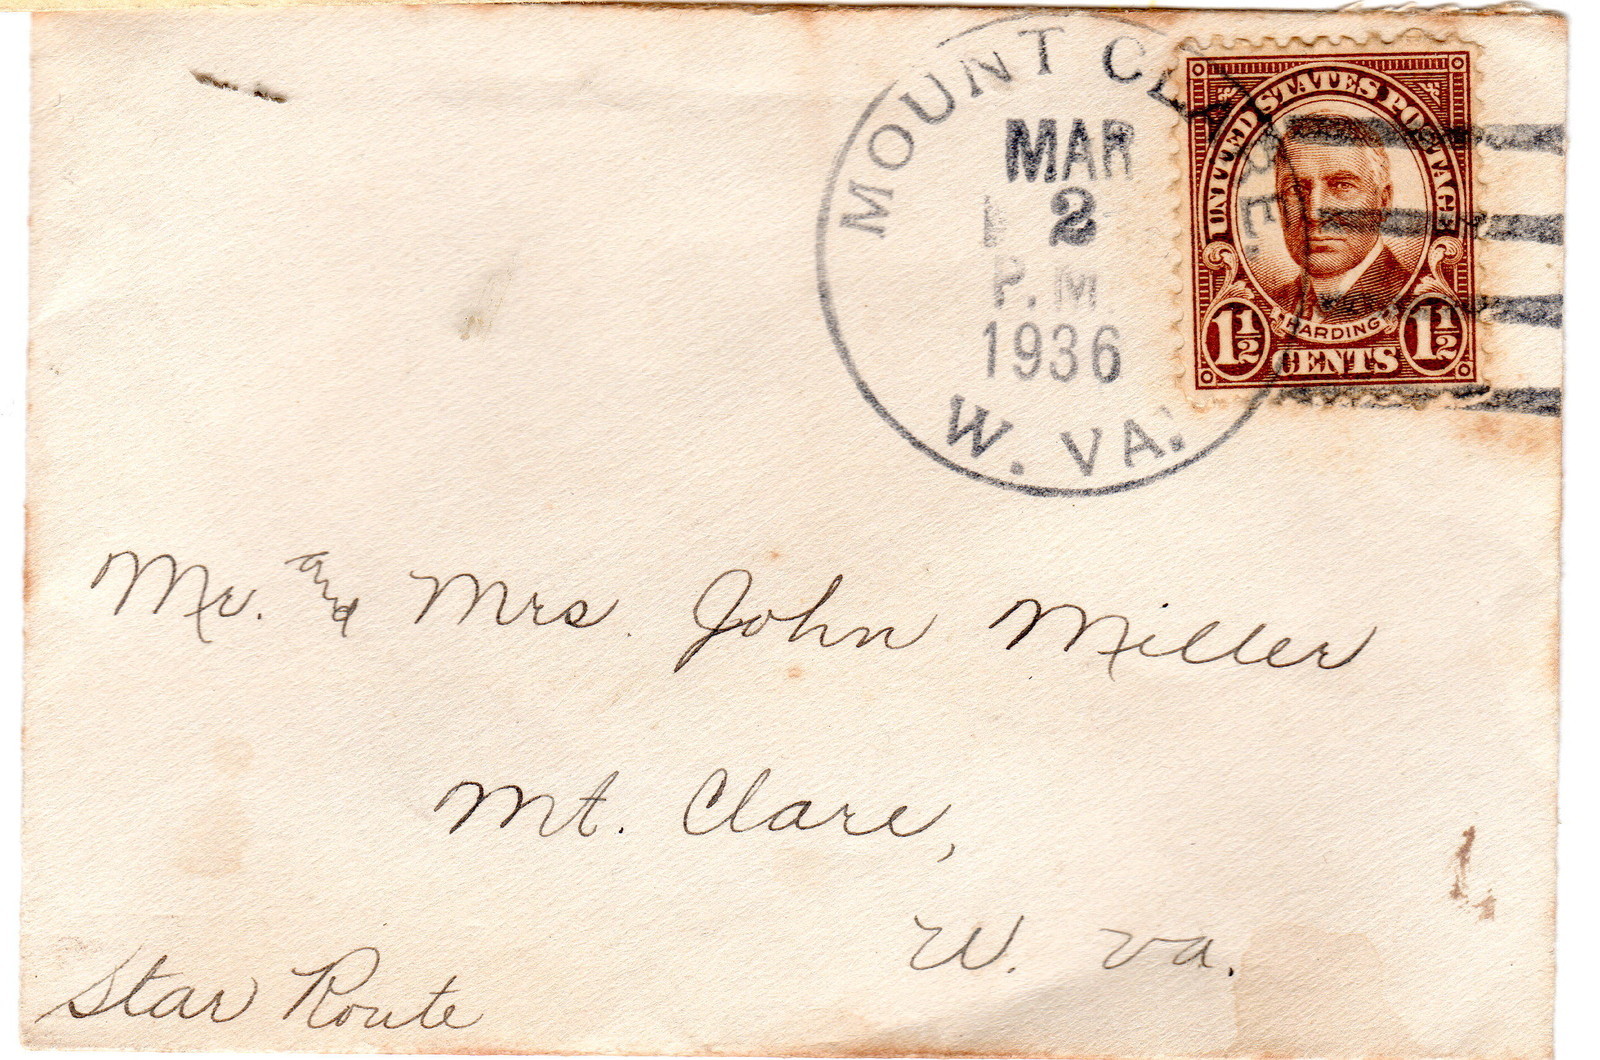 MOUNT CLARE.
MAR
2
P.M.
1936
W. VA.
UNITED STATES POSTAGE
HARDING
1½ CENTS 1½
Mr. and Mrs. John Miller
Mt. Clare,
W. Va.
Star Route